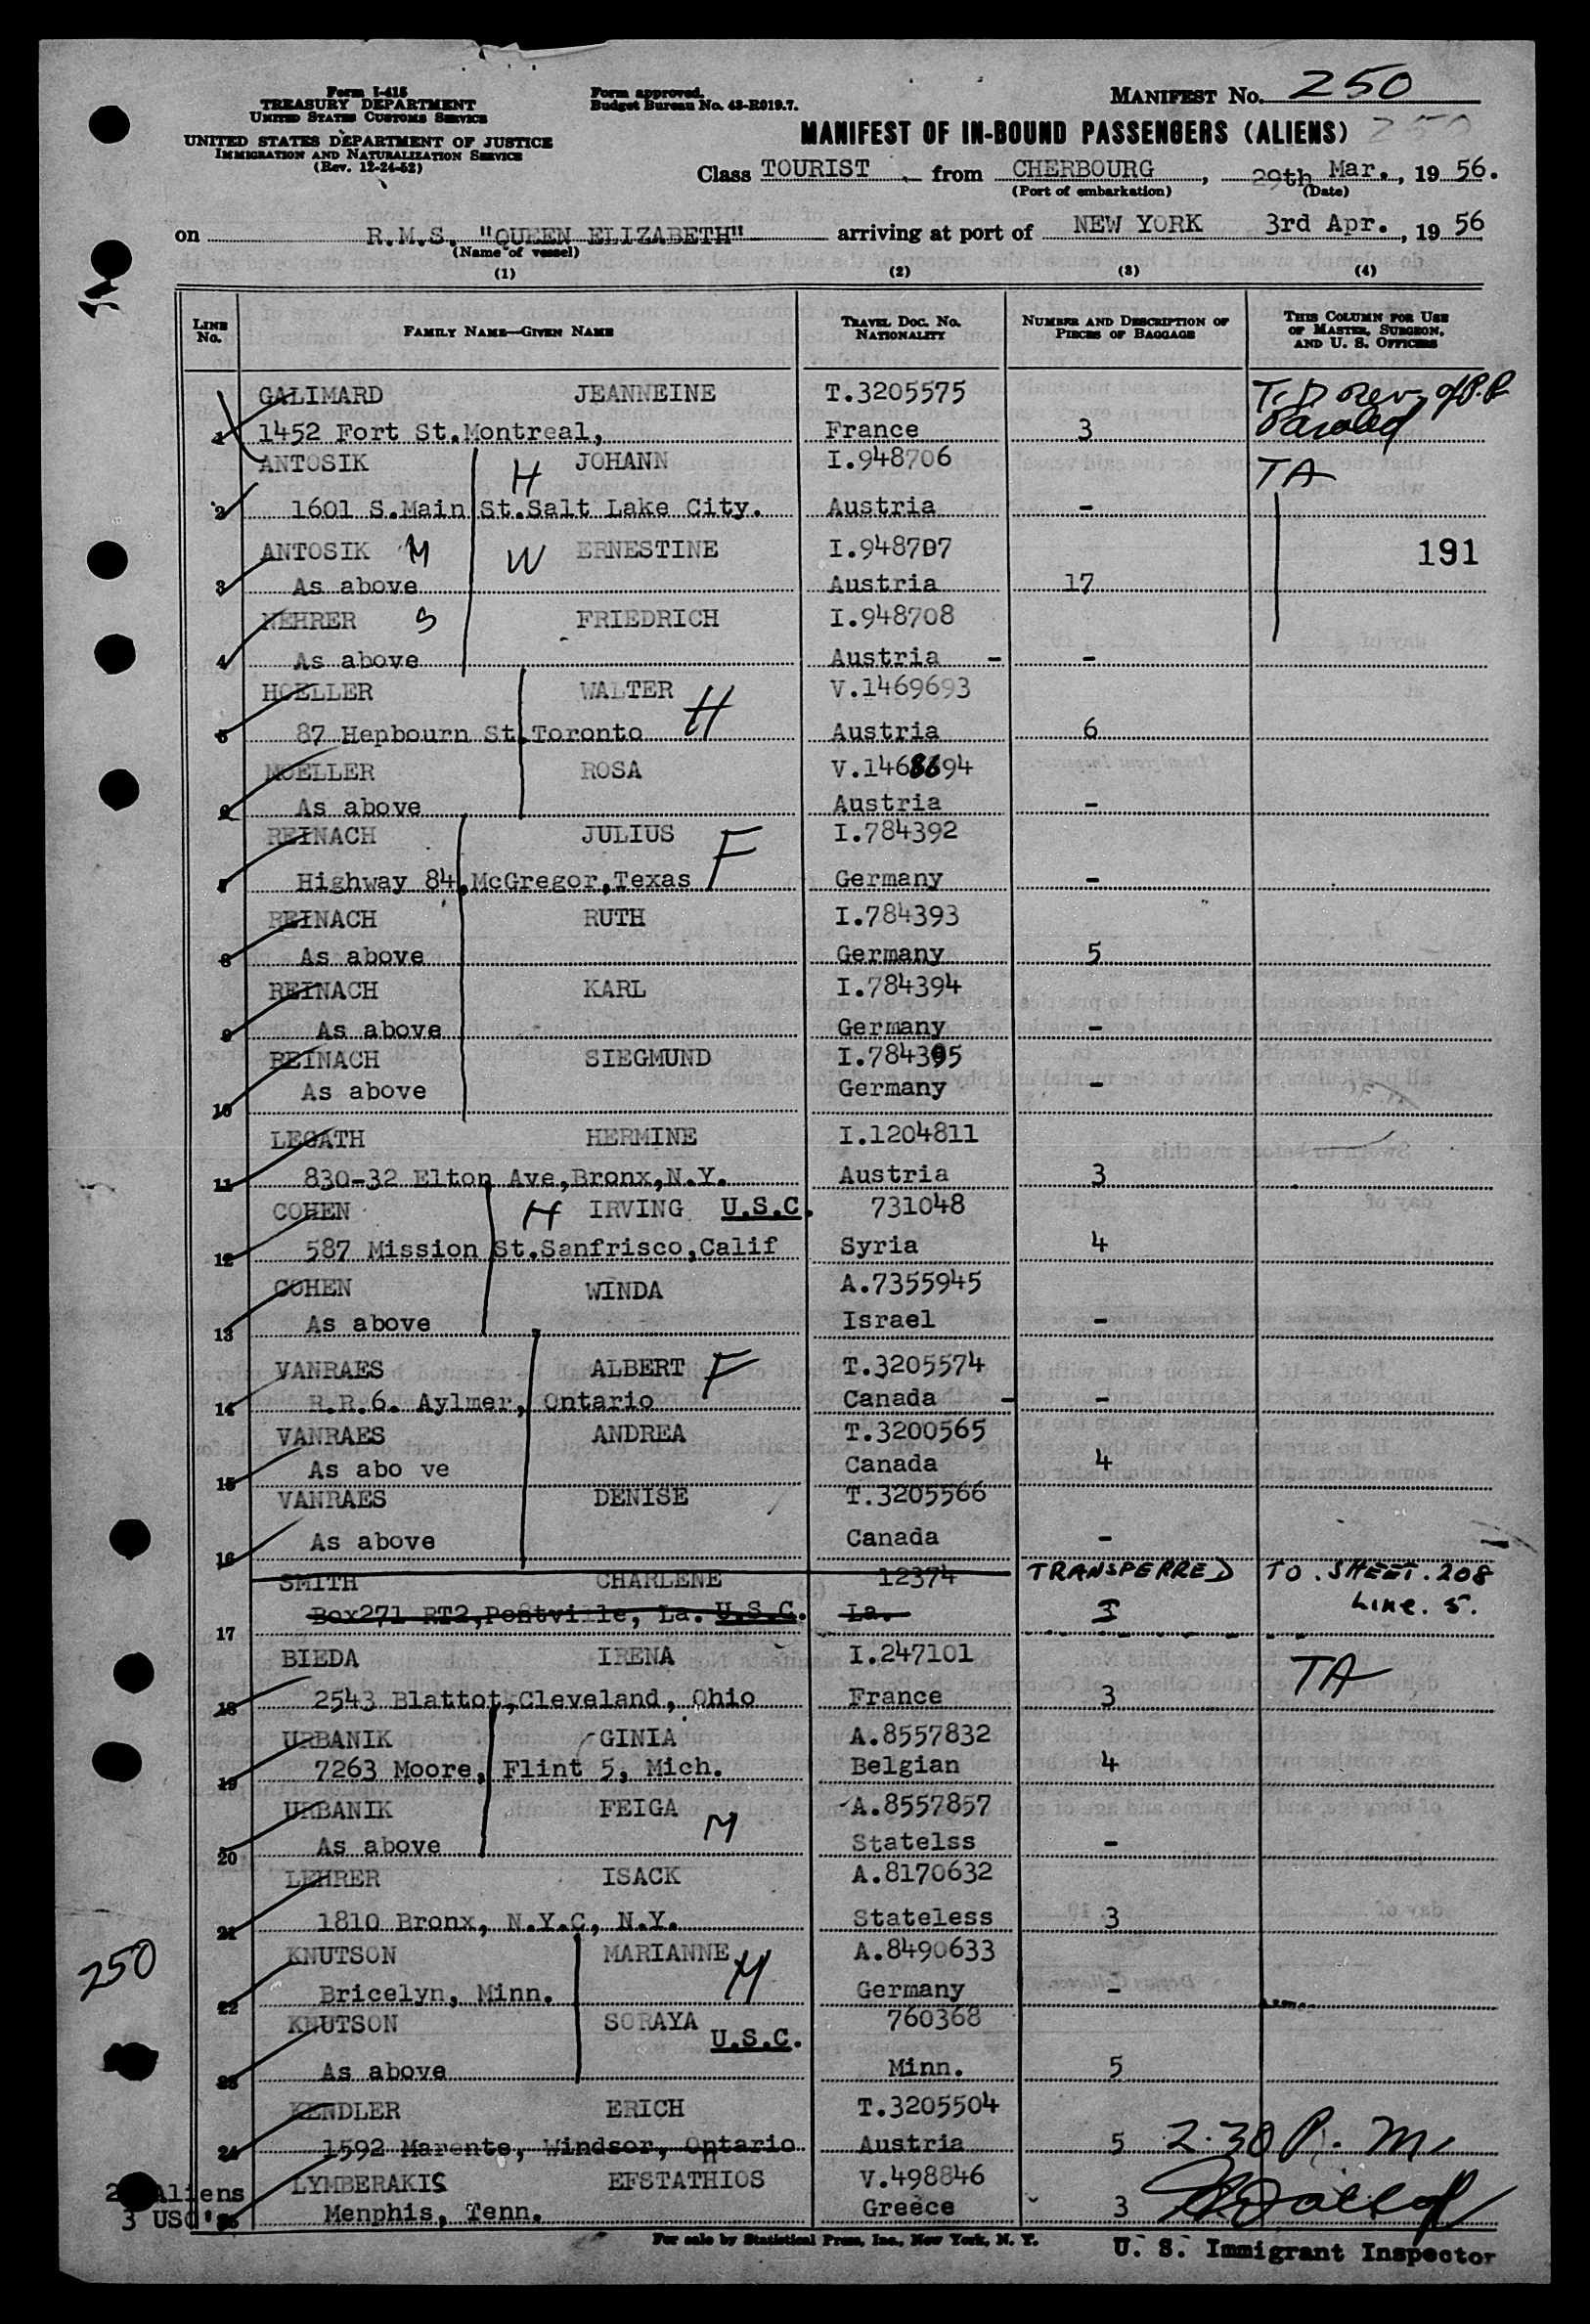 Form I-418
TREASURY DEPARTMENT
UNITED STATES CUSTOMS SERVICE
UNITED STATES DEPARTMENT OF JUSTICE
IMMIGRATION AND NATURALIZATION SERVICE
(Rev. 12-24-52)
Form approved.
Budget Bureau No. 43-R019.7.
MANIFEST No. 250
MANIFEST OF IN-BOUND PASSENGERS (ALIENS) 250
Class TOURIST from CHERBOURG, 29th Mar., 19 56.
(Port of embarkation) (Date)
on R.M.S. "QUEEN ELIZABETH" arriving at port of NEW YORK 3rd Apr., 19 56
(Name of vessel)
(1) (2) (3) (4)
LINE No. FAMILY NAME—GIVEN NAME TRAVEL DOC. No. NATIONALITY NUMBER AND DESCRIPTION OF PIECES OF BAGGAGE THIS COLUMN FOR USE OF MASTER, SURGEON, AND U. S. OFFICERS
GALIMARD JEANNEINE T.3205575 T.D Rev. of P.P.
1 1452 Fort St.Montreal, France 3 Paroled
ANTOSIK H JOHANN I.948706 TA
2 1601 S.Main St.Salt Lake City. Austria -
ANTOSIK M W ERNESTINE I.948707 191
3 As above Austria 17
NEHRER S FRIEDRICH I.948708
4 As above Austria - -
HOELLER WALTER H V.1469693
5 87 Hepbourn St.Toronto Austria 6
MOELLER ROSA V.1468694
6 As above Austria -
REINACH JULIUS F I.784392
7 Highway 84,McGregor,Texas Germany -
REINACH RUTH I.784393
8 As above Germany 5
REINACH KARL I.784394
9 As above Germany -
REINACH SIEGMUND I.784395
10 As above Germany -
LEGATH HERMINE I.1204811
11 830-32 Elton Ave,Bronx,N.Y. Austria 3
COHEN H IRVING U.S.C. 731048
12 587 Mission St.Sanfrisco,Calif Syria 4
COHEN WINDA A.7355945
13 As above Israel -
VANRAES ALBERT F T.3205574
14 R.R.6. Aylmer, Ontario Canada - -
VANRAES ANDREA T.3200565
15 As abo ve Canada 4
VANRAES DENISE T.3205566
16 As above Canada -
SMITH CHARLENE 12374 TRANSFERRED TO. SHEET. 208
17 Box271 RT2, La. U.S.C. La. Line. 5.
BIEDA IRENA I.247101 TA
18 2543 Blattot,Cleveland, Ohio France 3
URBANIK GINIA A.8557832
19 7263 Moore, Flint 5, Mich. Belgian 4
URBANIK FEIGA M A.8557857
20 As above Statelss -
LEHRER ISACK A.8170632
21 1810 Bronx, N.Y.C, N.Y. Stateless 3
250
KNUTSON MARIANNE M A.8490633
22 Bricelyn, Minn. Germany -
KNUTSON SORAYA U.S.C. 760368
23 As above Minn. 5
KENDLER ERICH T.3205504
24 1592 Marente, Windsor, Ontario Austria 5 2.30 P. M.
LYMBERAKIS EFSTATHIOS V.498846
Aliens
3 USC's 25 Menphis, Tenn. Greece 3
For sale by Statistical Press, Inc., New York, N. Y.
U. S. Immigrant Inspector